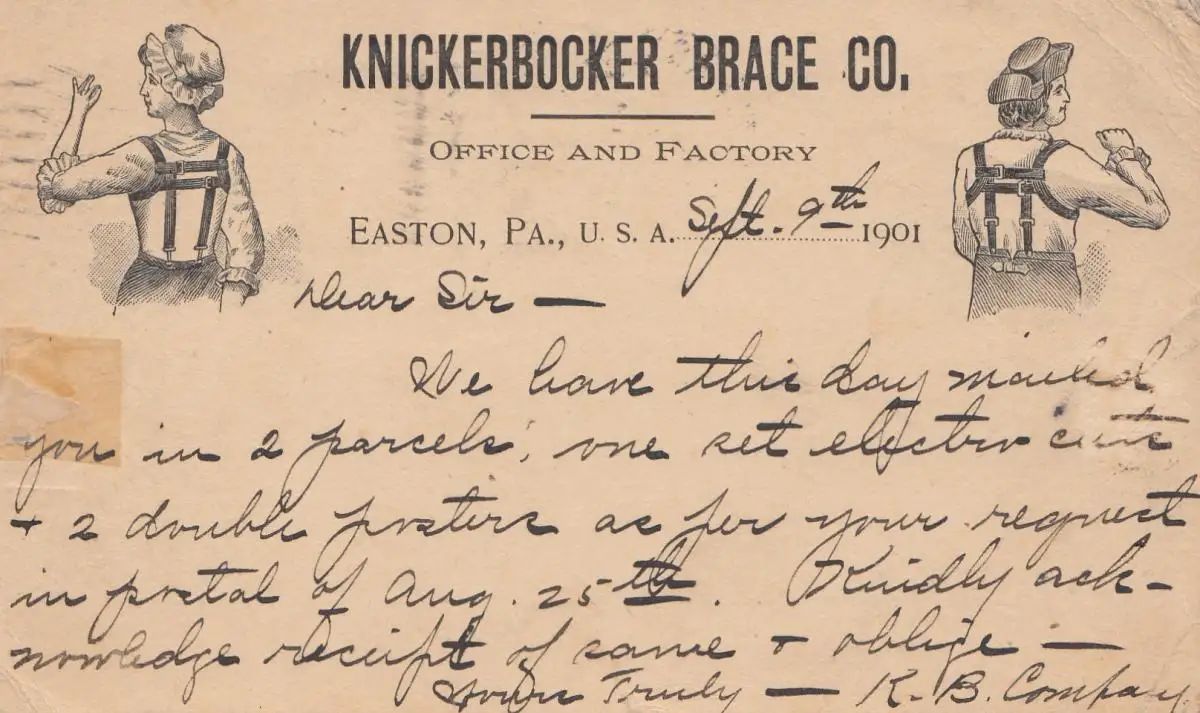 KNICKERBOCKER BRACE CO.
OFFICE AND FACTORY
EASTON, PA., U. S. A. Sept. 9th 1901
Dear Sir —
We have this day mailed
you in 2 parcels, one set electro cuts
+ 2 double posters as per your request
in postal of Aug. 25th. Kindly ack-
nowledge receipt of same + oblige —
Yours Truly — K. B. Company